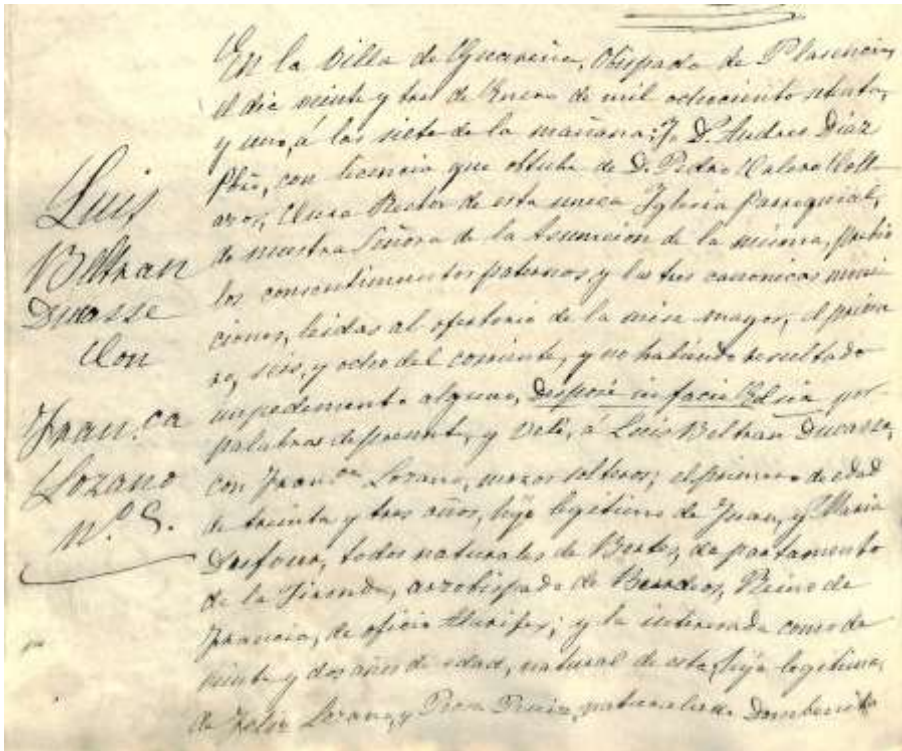 Luis
Beltran
Ducasse
Con
Fran.ca
Lozano
N.º 5.
En la Villa de Guareña, Obispado de Plasencia,
el dia veinte y tres de Enero de mil ochociento setenta,
y uno, á las siete de la mañana: Yo D. Andres Diaz
Pbro, con licencia que obtube de D. Pedro Valero
Cura Rector de esta unica Yglesia Parroquial,
de nuestra Señora de la Asuncion de la misma, prebio
los consentimientos paternos, y las tres canonicas moni
ciones, leidas al ofertorio de la misa mayor, el prime
ro, seis, y ocho del corriente, y no habiendo resultado
impedimento alguno, Desposé in facie por
palabras de presente, y velé, á Luis Beltran Ducasse,
con Fran.ca Lozano, mozos solteros; el primero de edad
de treinta y tres años, hijo legitimo de Juan, y Maria
todos naturales de departamento
de la arzobispado de Burdeos, Reino de
Francia, de oficio Alarife; y la interesada como de
veinte y dos años de edad, natural de esta, hija legitima,
de Felix Lozano, y naturales de Dombenito